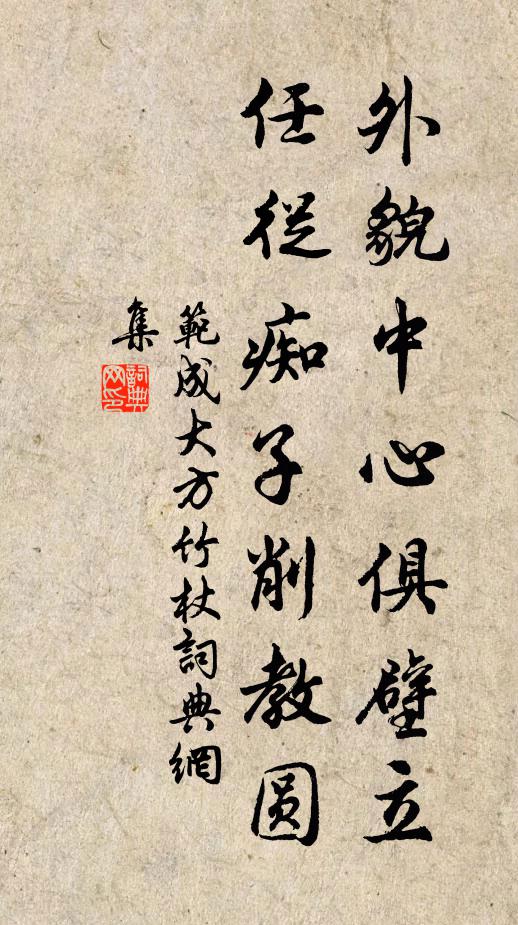 外貌中心俱壁立
任從痴子削教圓
範成大方竹杖詞典網
集
詞典网印